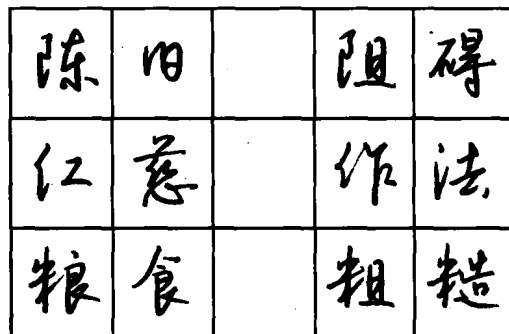 陈旧 阻碍
红慈 作法
粮食 粗糙